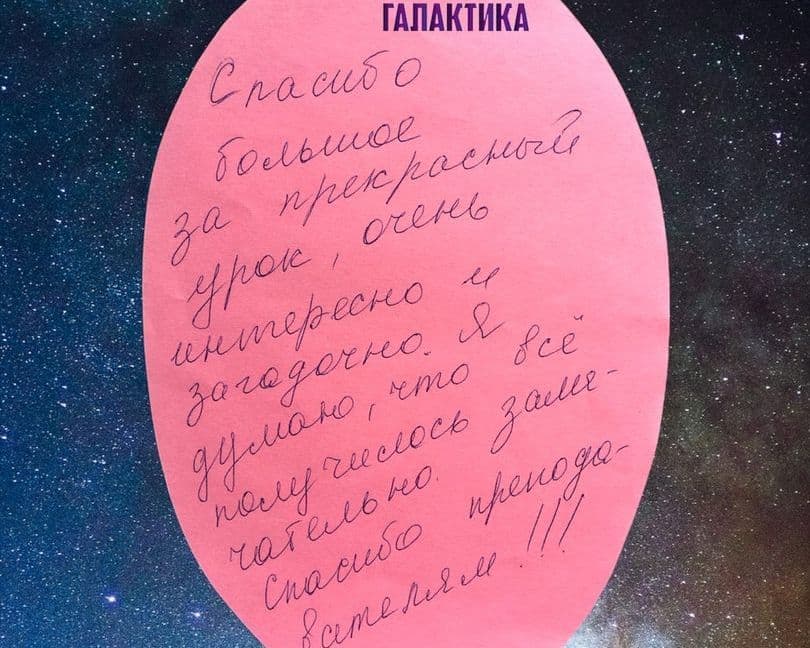 ГАЛАКТИКА
Спасибо
большое
за прекрасный
урок, очень
интересно и
загадочно. Я
думаю, что всё
получилось заме-
чательно.
Спасибо препода-
вателям!!!